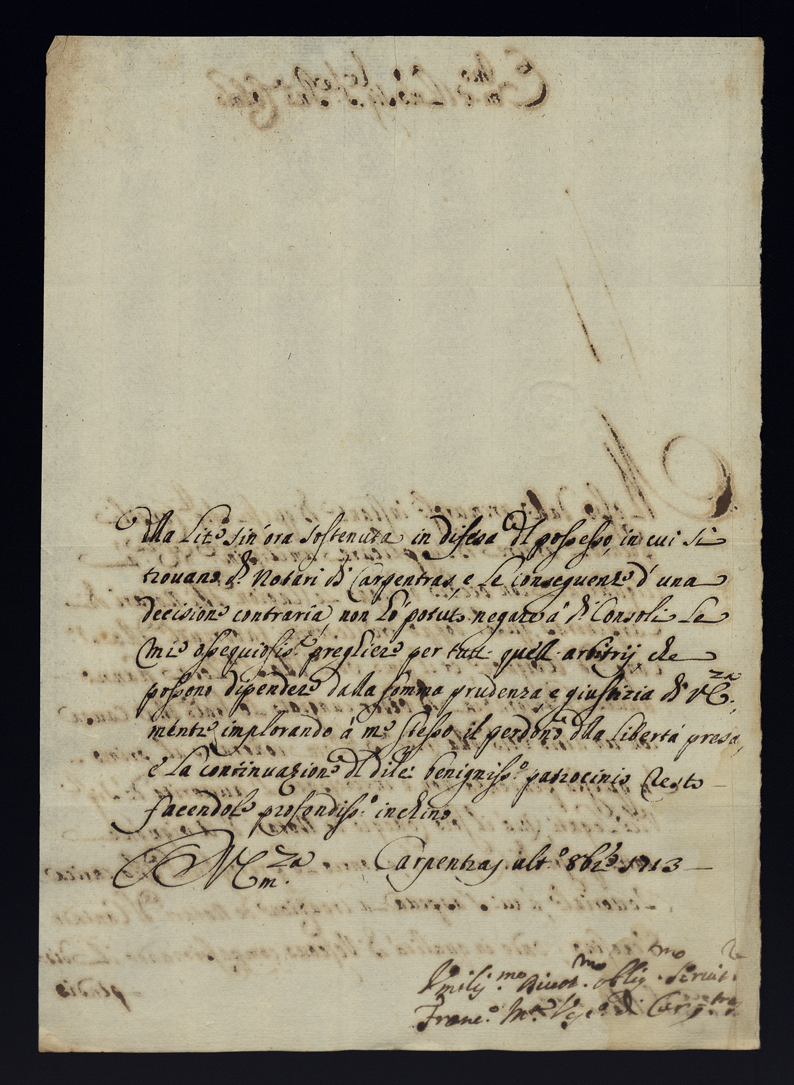 della Lite sin' ora sostenuta in difesa del possesso, in cui si
trovano di Notari di Carpentras, e le conseguenze d' una
decisione contraria, non hò potuto negare à di Consoli le
mie ossequiosis.e preghiere per tutti quelli arbitrij, che
possono dipendere dalla somma prudenza, e giustizia di V. E.za,
mentre implorando à me stesso il perdono della libertà presa,
e la continuazione del di lei benigniss.o patrocinio resto
facendole profondiss.o inchino
Carpentras ult.o 8bre 1713
Vmiliss.mo Divot.mo oblig.mo Servit.re
Franc.o M.a Ves.o di Carp.tras